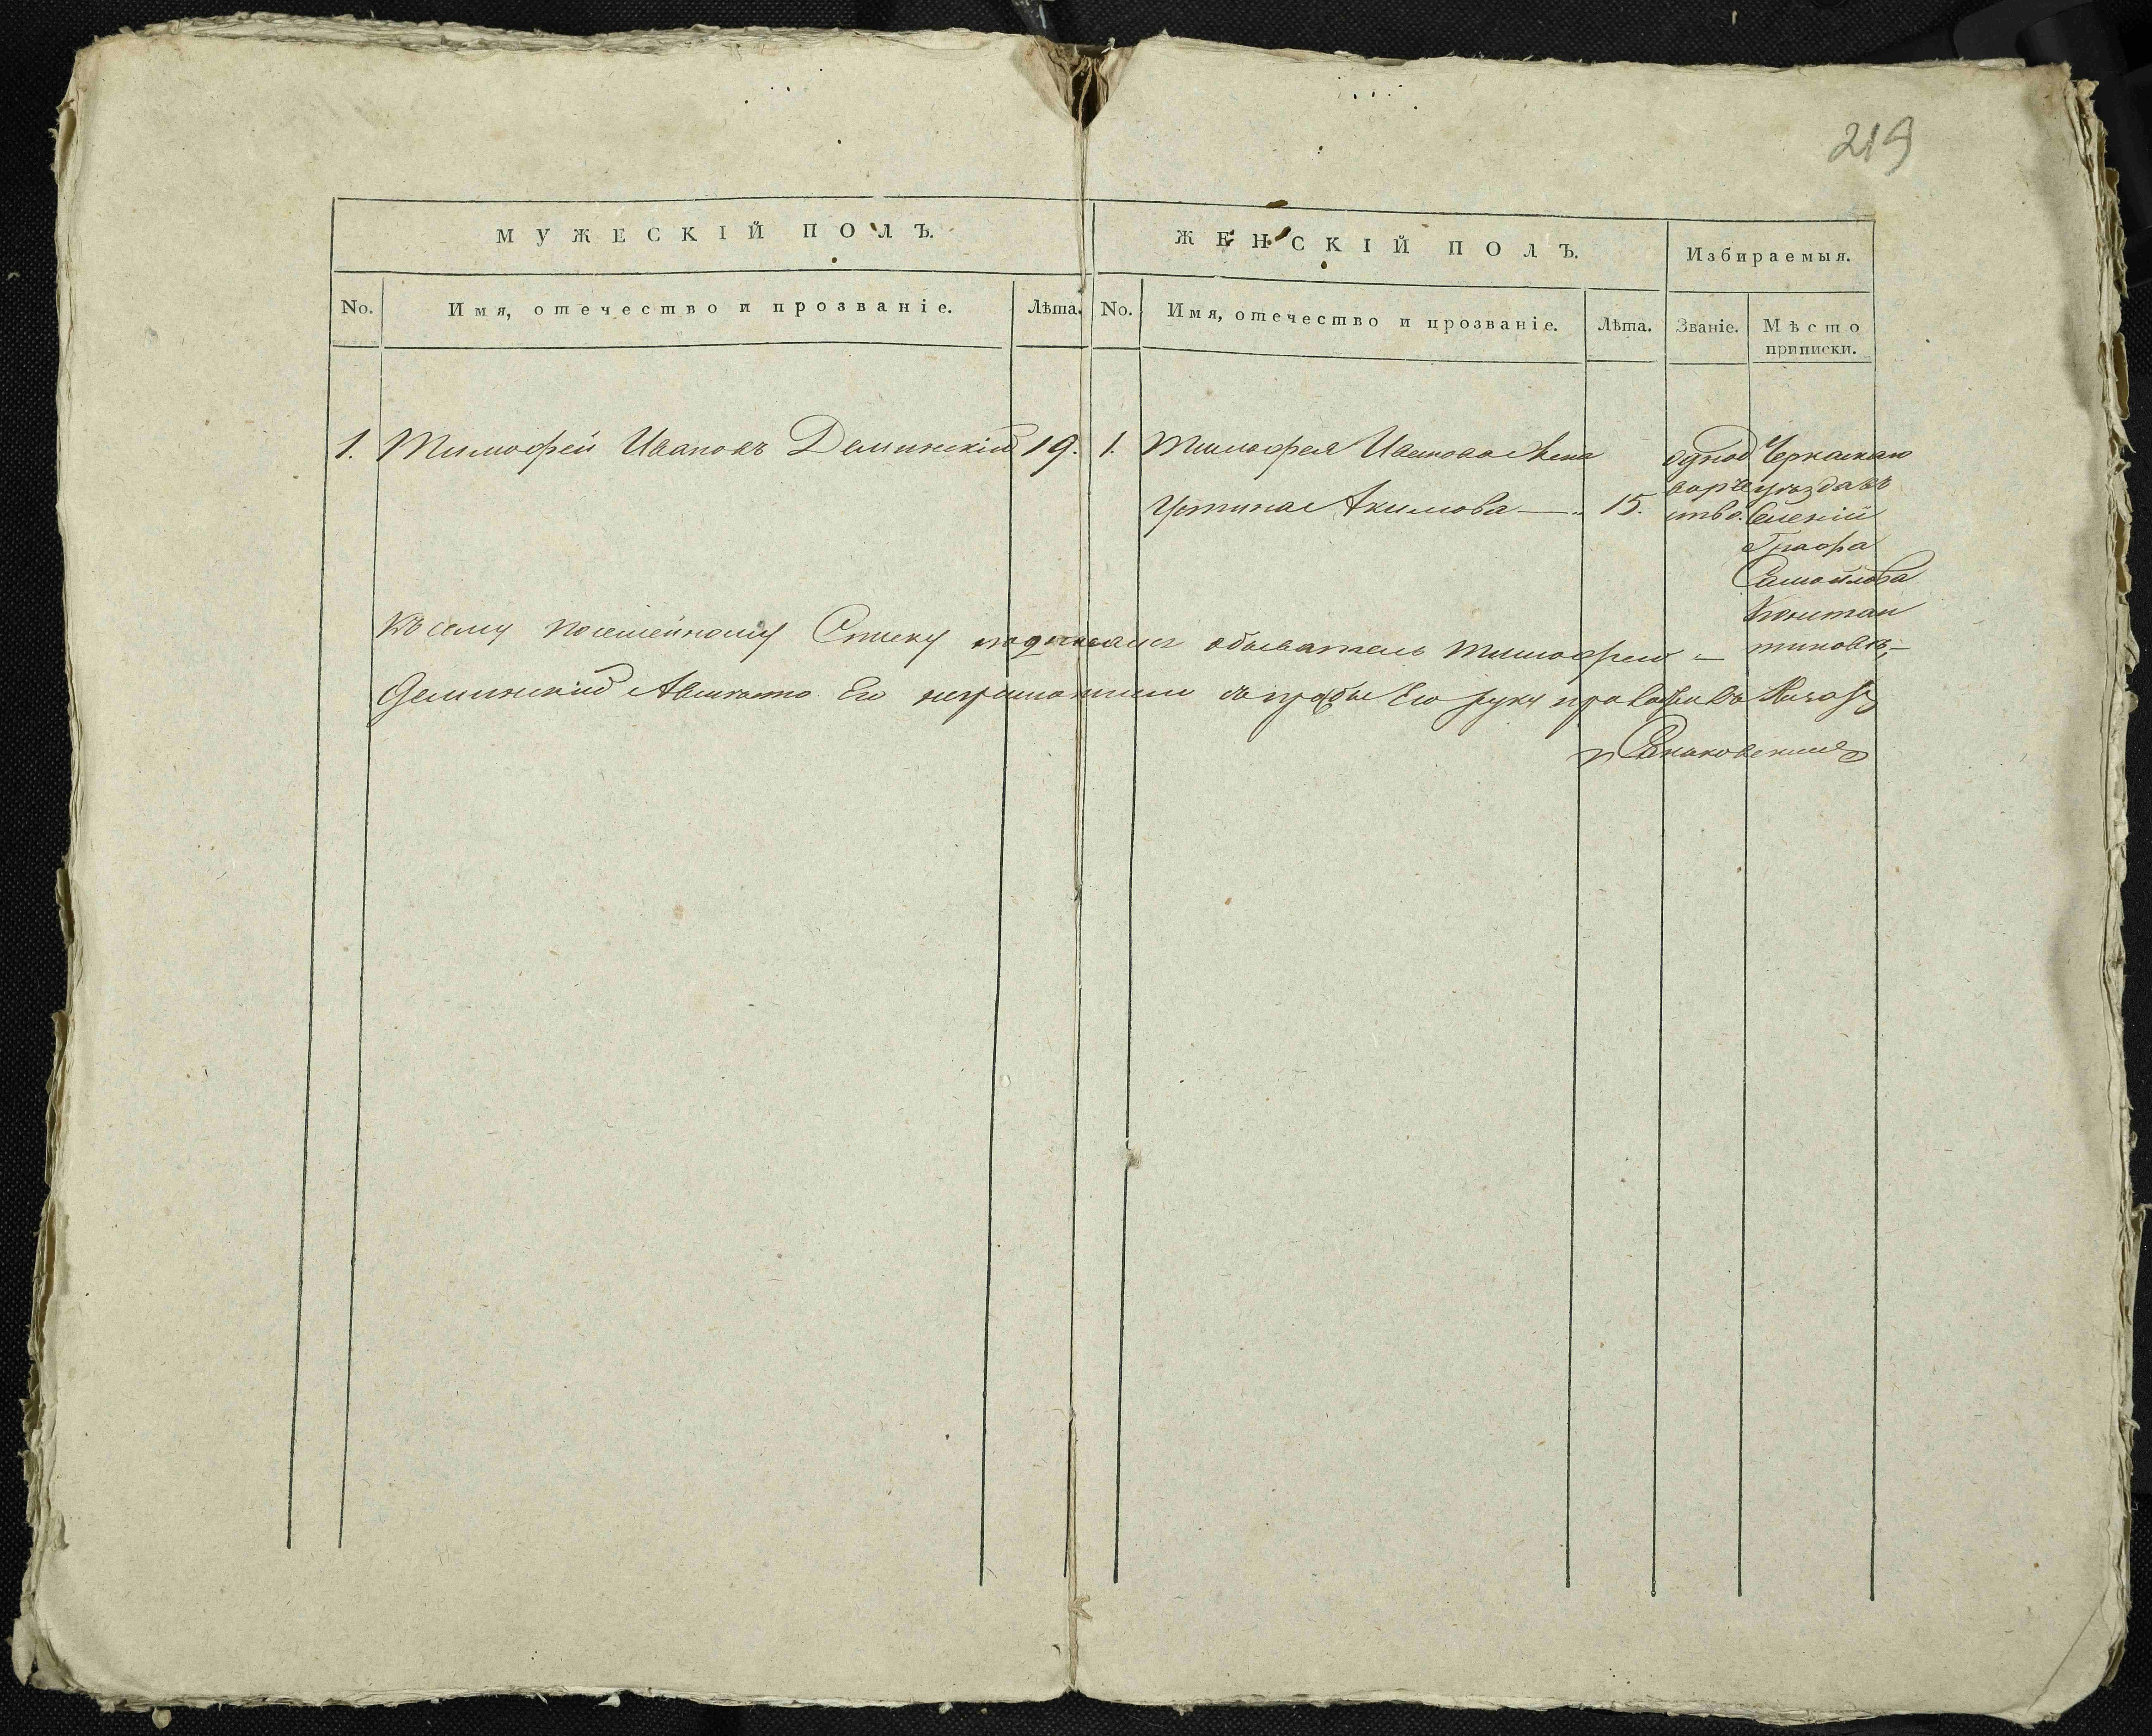 219
МУЖЕСКІЙ ПОЛЪ.
ЖЕНСКІЙ ПОЛЪ.
Избираемыя.
No.
Имя, отечество и прозваніе.
Лѣта.
No.
Имя, отечество и прозваніе.
Лѣта.
Званіе.
Мѣсто
приписки.
1. Тимофей Ивановъ Деминскій 19.
1. Тимофея Иванова жена
Устина Акимова — 15.
однод
ворче
ство.
Черкаскаго
уѣзда въ
селеніи
Графа
Самойлова
Констан
тиновкѣ;
Къ сему посемейному Списку обыватель Тимофей
Деминскій А вместо Его негramотнаго